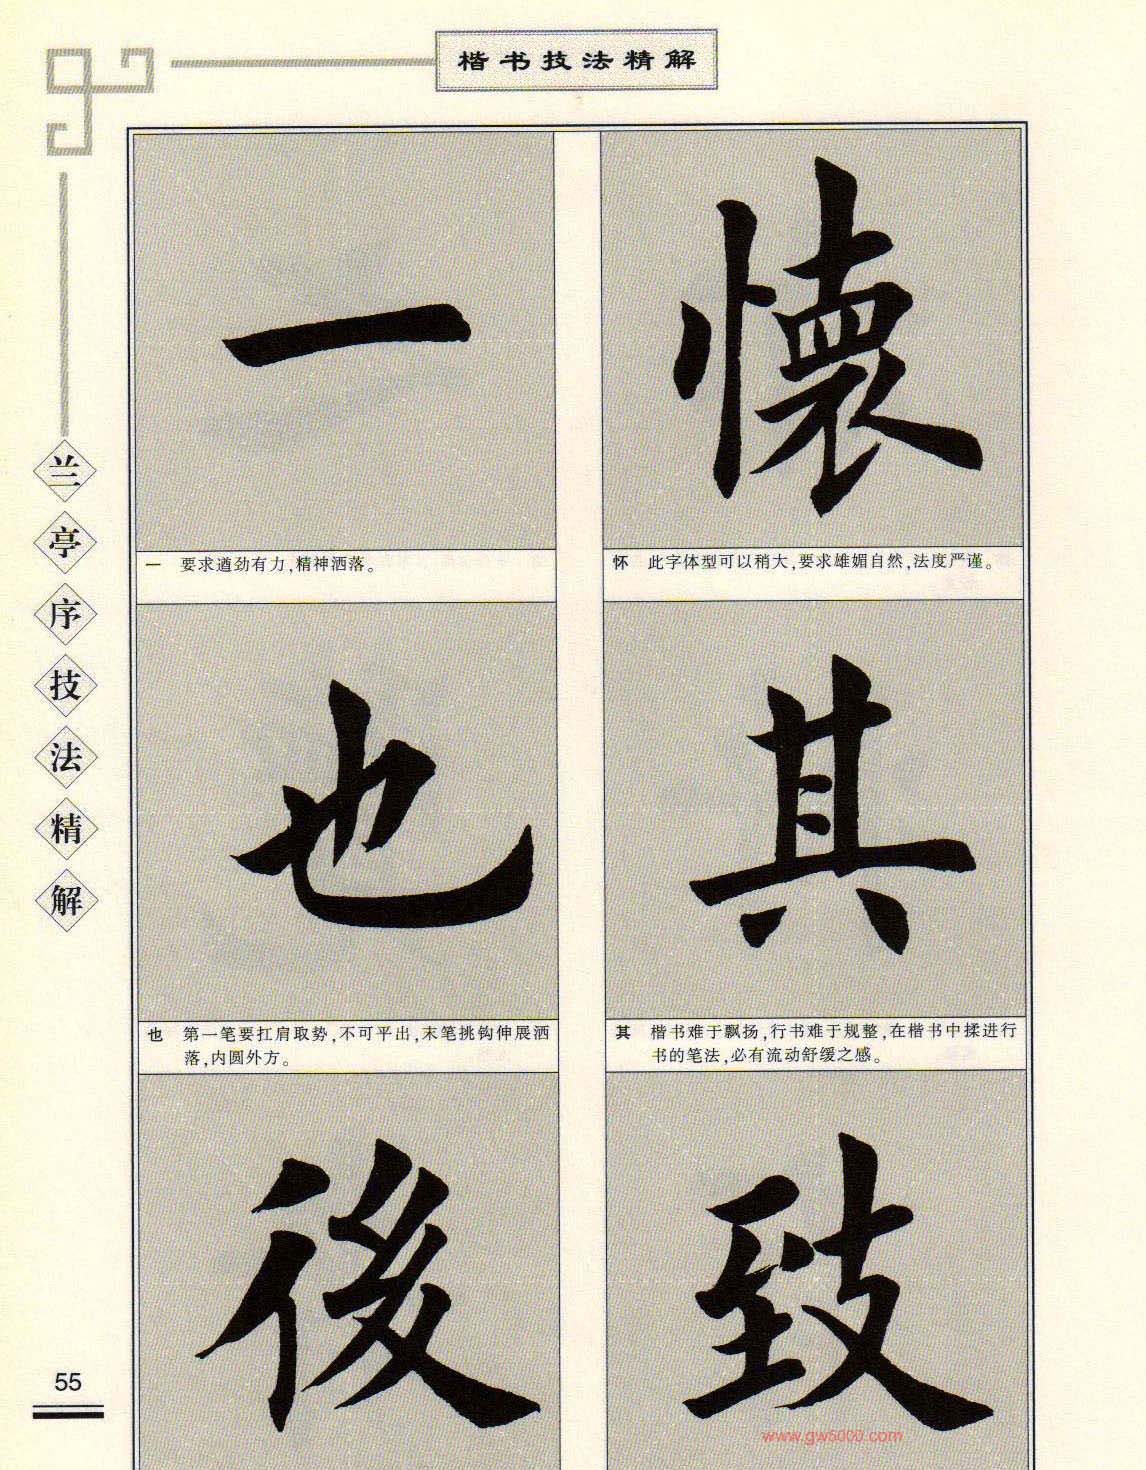 楷书技法精解
兰亭序技法精解
懷
怀 此字体型可以稍大,要求雄媚自然,法度严谨。
其
其 楷书难于飘扬,行书难于规整,在楷书中揉进行
书的笔法,必有流动舒缓之感。
致
一
一 要求遒劲有力,精神洒落。
也
也 第一笔要扛肩取势,不可平出,末笔挑钩伸展洒
落,内圆外方。
後
55
www.gw5000.com